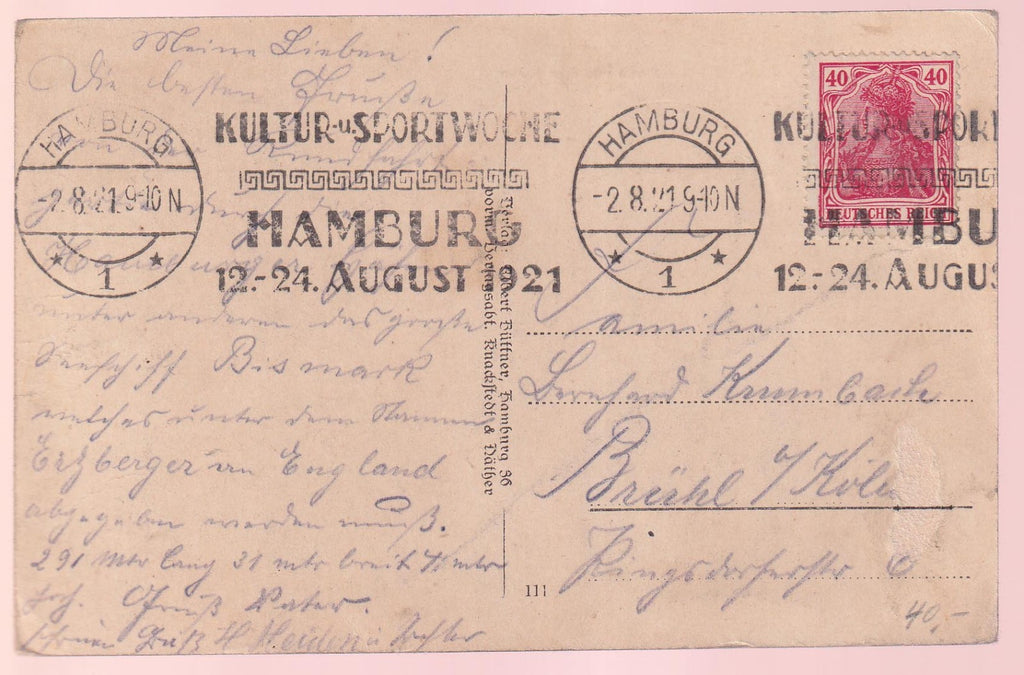 Meine Lieben!
Die besten Grüße
von der Rundfahrt
Hamburger
unter anderen das große
Seeschiff Bismark
welches unter dem Namen
Erzberger an England
abgegeben werden muß.
291 mtr lang 31 mtr breit mtr
hoch. Gruß Vater.
Gruß H Heiden u Tochter
HAMBURG
-2.8.21.9-10N
1
KULTUR-u.SPORTWOCHE
HAMBURG
12.-24. AUGUST 1921
HAMBURG
-2.8.21.9-10N
1
KULTUR-u.SPORT
HAMBU
12.-24. AUGUS
40 40
DEUTSCHES REICH
Verlag: Albert Büttner, Hamburg 36
vorm. Verlagsabt. Knackstedt & Näther
Familie
Bernhard Krumbach
Brühl b/Köln
Pingsdorferstr 6
111
40,-